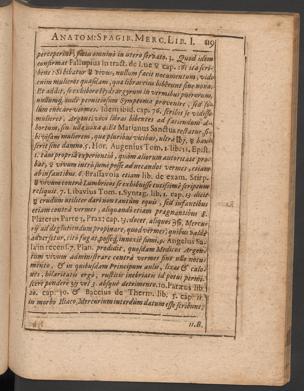 ANATOM: SPAGIR. MERC. LIB. I. 119
perceperint, fœtu omnino in utero servato. 3. Quod idem
confirmat Fallopius in tract. de Lue & cap. 81. ita scri-
bens: Si bibatur & vivus, nullum facit nocumentum, vidi
enim mulieres quasdam, quæ libras eius biberunt sine noxa.
Et addit, se exhibere Hydrargyrum in vermibus puerorum,
nullumq; inde perniciosum symptoma provenire, sed so-
lum enecare vermes. Idem ibid. cap. 76. scribit se vidisse
mulieres, Argenti vivi libras bibentes ad faciendum a-
bortum, sine noxa. 4. Et Marianus Sanctus
sam mulierem, quæ pluribus vicibus, ultra lb j. & bau-
serit sine damno. 5. Hor. Augenius Tom. 1. lib. 11. Epist.
1. tam propria experientia, quàm aliorum autoritate pro-
bat, & vivum intrò sumi posse ad necandos vermes, etiam
ab infantibus. 6. Brassavola etiam lib. de exam. Simp.
& vivum contra lumbricos se exhibuisse
reliquit. 7. Libavius Tom. 1. Syntag. lib. 1. cap. 13. dulce
& crudum utiliter dari non tantum equis, sed infantibus
etiam contra vermes, aliquando etiam prægnantibus 8.
Platerus Parte 1. Prax: cap. 13. docet, aliquos ℥ß. Mercu-
rii ad deglutiendum propinare, quod vermes, quibus valde
adversetur, citò fuget, possitq; innoxiè sumi. 9. Angelus Sa-
la in recens. 7. Plan. prædicit, quosdam Medicos Argen-
tum vivum administrare contrà vermes sine ullo nocu-
mento, & in quibusdam Principum aulis, lixas & calo-
nes, hilaritatis ergò, rusticis inebriatis id potui permi-
scere pondere ʒij vel 3. absque detrimento. 10. Paræus lib.
20. cap. 30. & Baccius de Therm. lib. 5. cap. 11.
in morbo Iliaco, Mercurium interdum datum esse scribunt.
11. B.